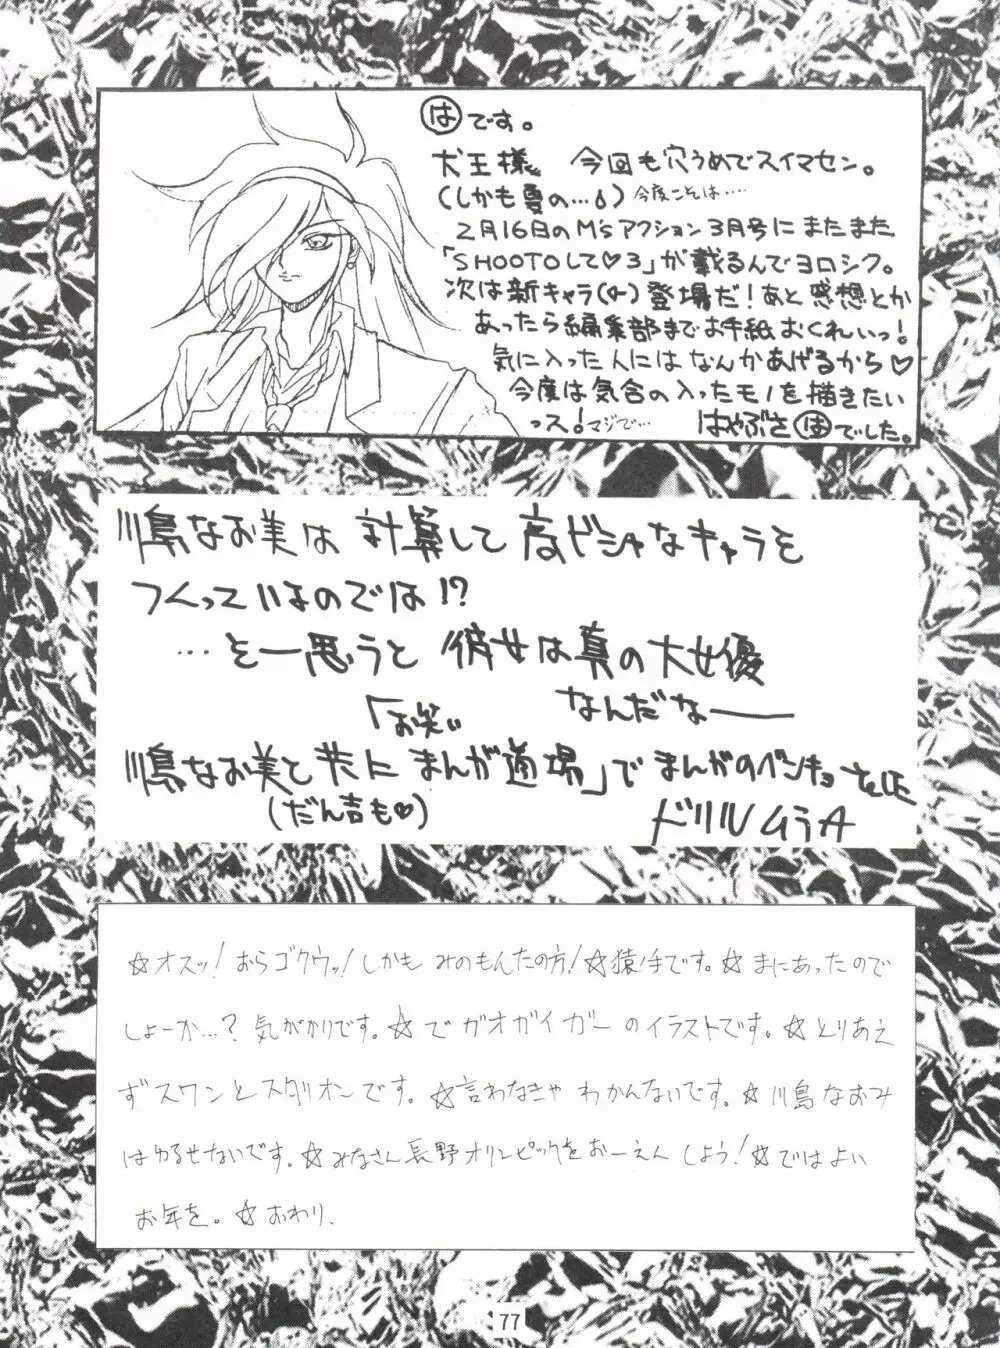 はです。
犬王様 今回も穴うめでスイマセン。
(しかも夏の…) 今度こそは‥‥
2月16日のM'sアクション3月号にまたまた
「SHOOTOして♡3」が載るんでヨロシク。
次は新キャラ(♀)登場だ!あと感想とか
あったら編集部までお手紙おくれいっ!
気に入った人にはなんかあげるから♡
今度は気合の入ったモノを描きたい
っス!マジで…
はやぶさはでした。
川島なお美は計算して高ビシャなキャラを
つくっているのでは!?
…と一思うと 彼女は真の大女優
なんだなー
「お笑い
川島なお美と共に まんが道場」で まんがのベンキョーをした
(だん吉も♡)
ドリルムラA
☆オスッ!おらゴクウッ!しかも みのもんたの方!☆猿手です。☆まにあったので
しょーか…?気がかりです。☆でガオガイガーのイラストです。☆とりあえ
ずスワンとスタリオンです。☆言わなきゃ わかんないです。☆川島なおみ
はゆるせないです。☆みなさん長野オリンピックをおーえん しよう!☆ではよい
お年を。☆おわり、
77